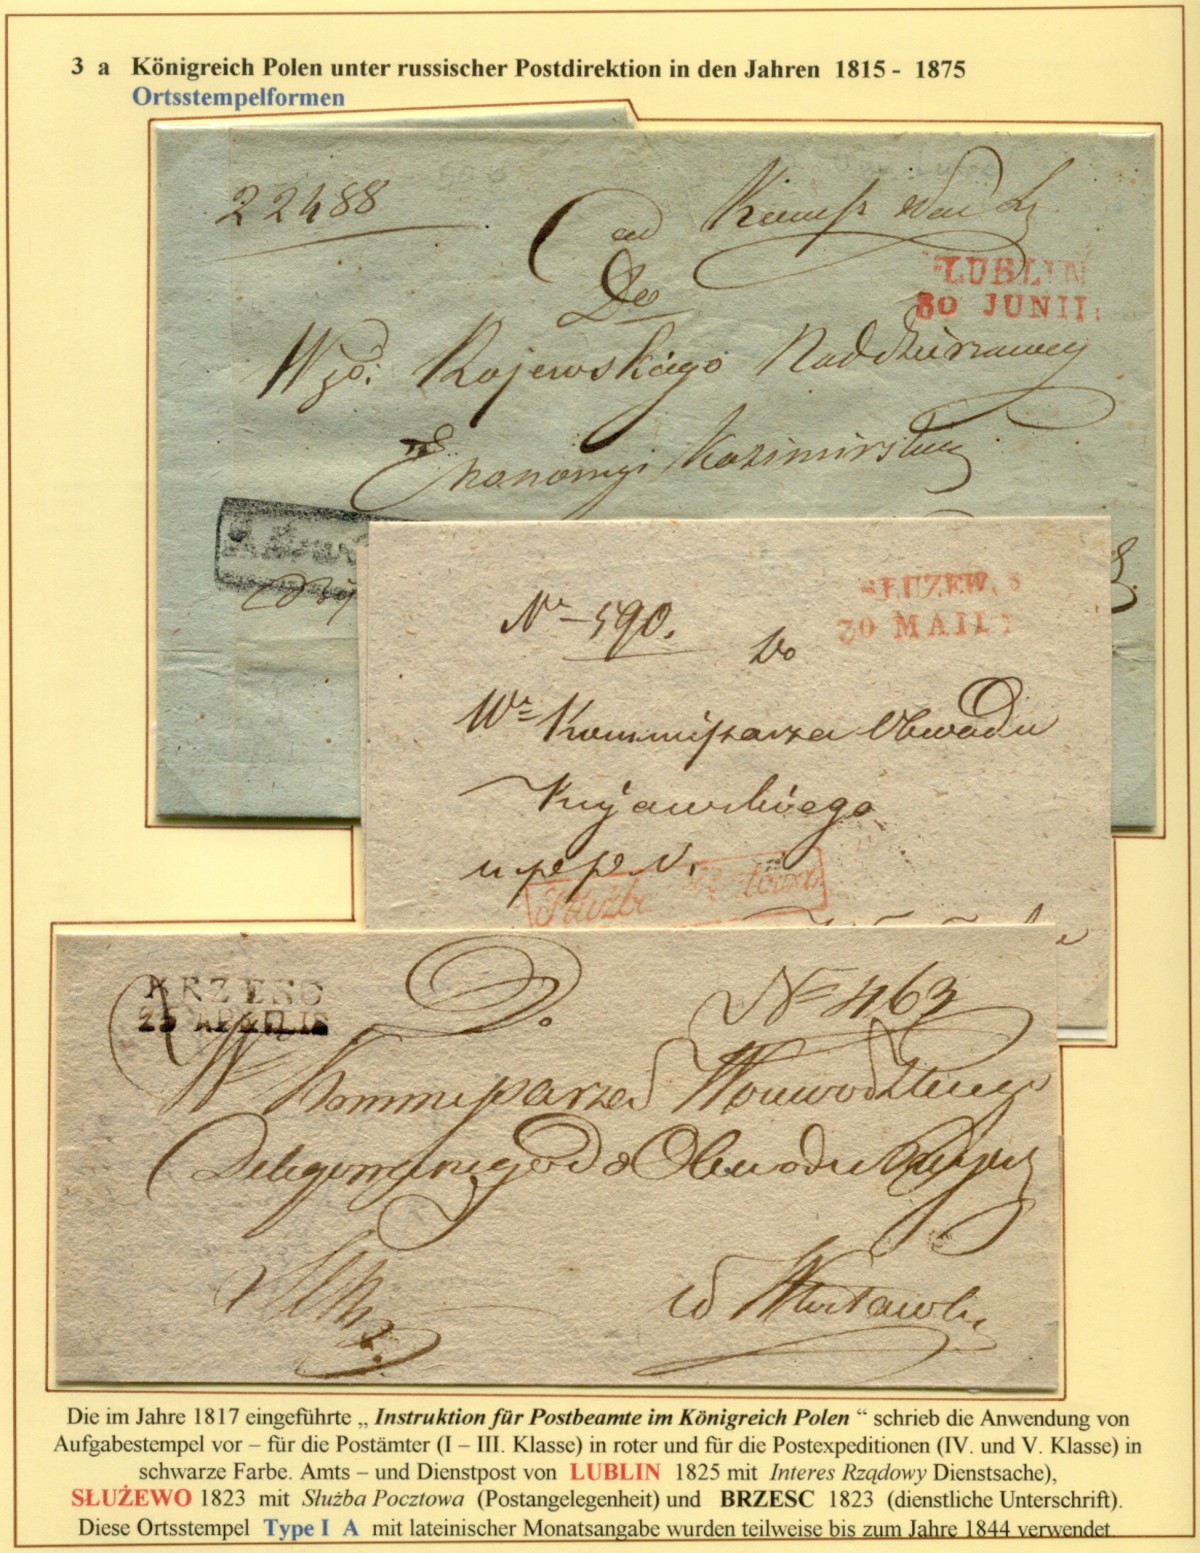 3 a Königreich Polen unter russischer Postdirektion in den Jahren 1815 - 1875
Ortsstempelformen
22488
Do
LUBLIN
30 JUNII
Wgo: Rajewskiego Naddzierzawcy
Ekonomyi Kazimirskiey
SŁUZEW
20 MAII
Nr 590.
Do
Wo Kommissarza Obwodu
Kujawskiego
Służba Pocztowa
BRZESC
25 APRILIS
Do
No 463
W Kommissarza
Delegowanego do Obwodu
w
Die im Jahre 1817 eingeführte „ Instruktion für Postbeamte im Königreich Polen “ schrieb die Anwendung von
Aufgabestempel vor – für die Postämter (I – III. Klasse) in roter und für die Postexpeditionen (IV. und V. Klasse) in
schwarze Farbe. Amts – und Dienstpost von LUBLIN 1825 mit Interes Rządowy Dienstsache),
SŁUŻEWO 1823 mit Służba Pocztowa (Postangelegenheit) und BRZESC 1823 (dienstliche Unterschrift).
Diese Ortsstempel Type I A mit lateinischer Monatsangabe wurden teilweise bis zum Jahre 1844 verwendet